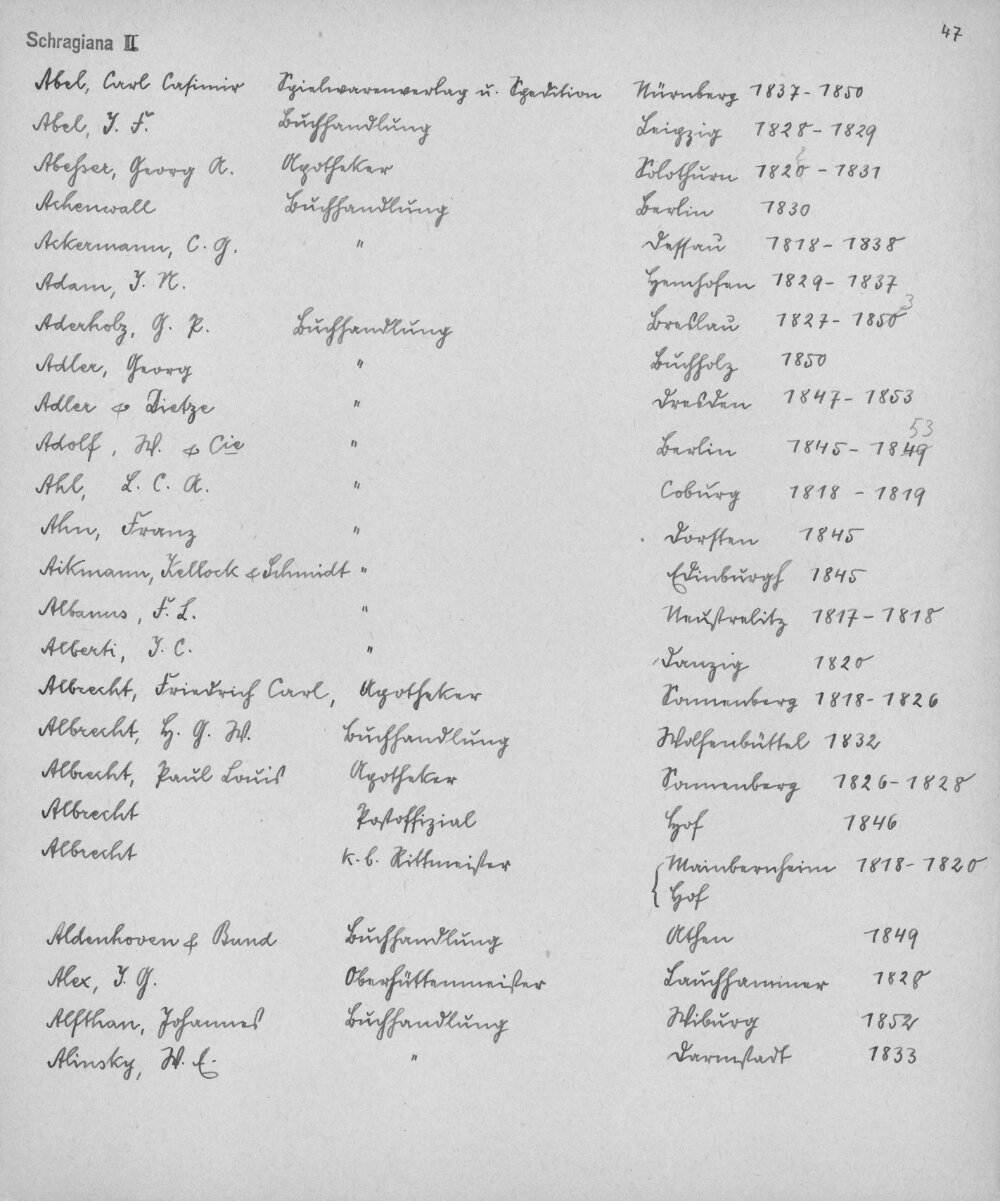 47
Schragiana II
Abel, Carl Casimir Spielwarenverlag u. Spedition Nürnberg 1837-1850
Abel, J. F. Buchhandlung Leipzig 1828-1829
Abesser, Georg A. Apotheker Solothurn 1820 - 1831
Achenwall Buchhandlung Berlin 1830
Ackermann, C. G. " Dessau 1818-1838
Adam, J. N. Hemhofen 1829-1837
Aderholz, G. P. Buchhandlung Breslau 1827-1850 3
Adler, Georg " Buchholz 1850
Adler & Dietze " Dresden 1847-1853
Adolf, W. & Cie " Berlin 1845-1849 53
Ahl, L. C. A. " Coburg 1818 - 1819
Ahn, Franz " Dorsten 1845
Aikmann, Kellock & Schmidt " Edinburgh 1845
Albanus, F. L. " Neustrelitz 1817-1818
Alberti, J. C. " Danzig 1820
Albrecht, Friedrich Carl, Apotheker Sonnenberg 1818-1826
Albrecht, H. G. W. Buchhandlung Wolfenbüttel 1832
Albrecht, Paul Louis Apotheker Sonnenberg 1826-1828
Albrecht Postoffizial Hof 1846
Albrecht k. b. Rittmeister { Mainbernheim 1818-1820
Hof
Aldenhoven & Band Buchhandlung Athen 1849
Alex, J. G. Oberhüttenmeister Lauchhammer 1828
Alfthan, Johannes Buchhandlung Wiburg 1852
Alinsky, W. E. " Darmstadt 1833